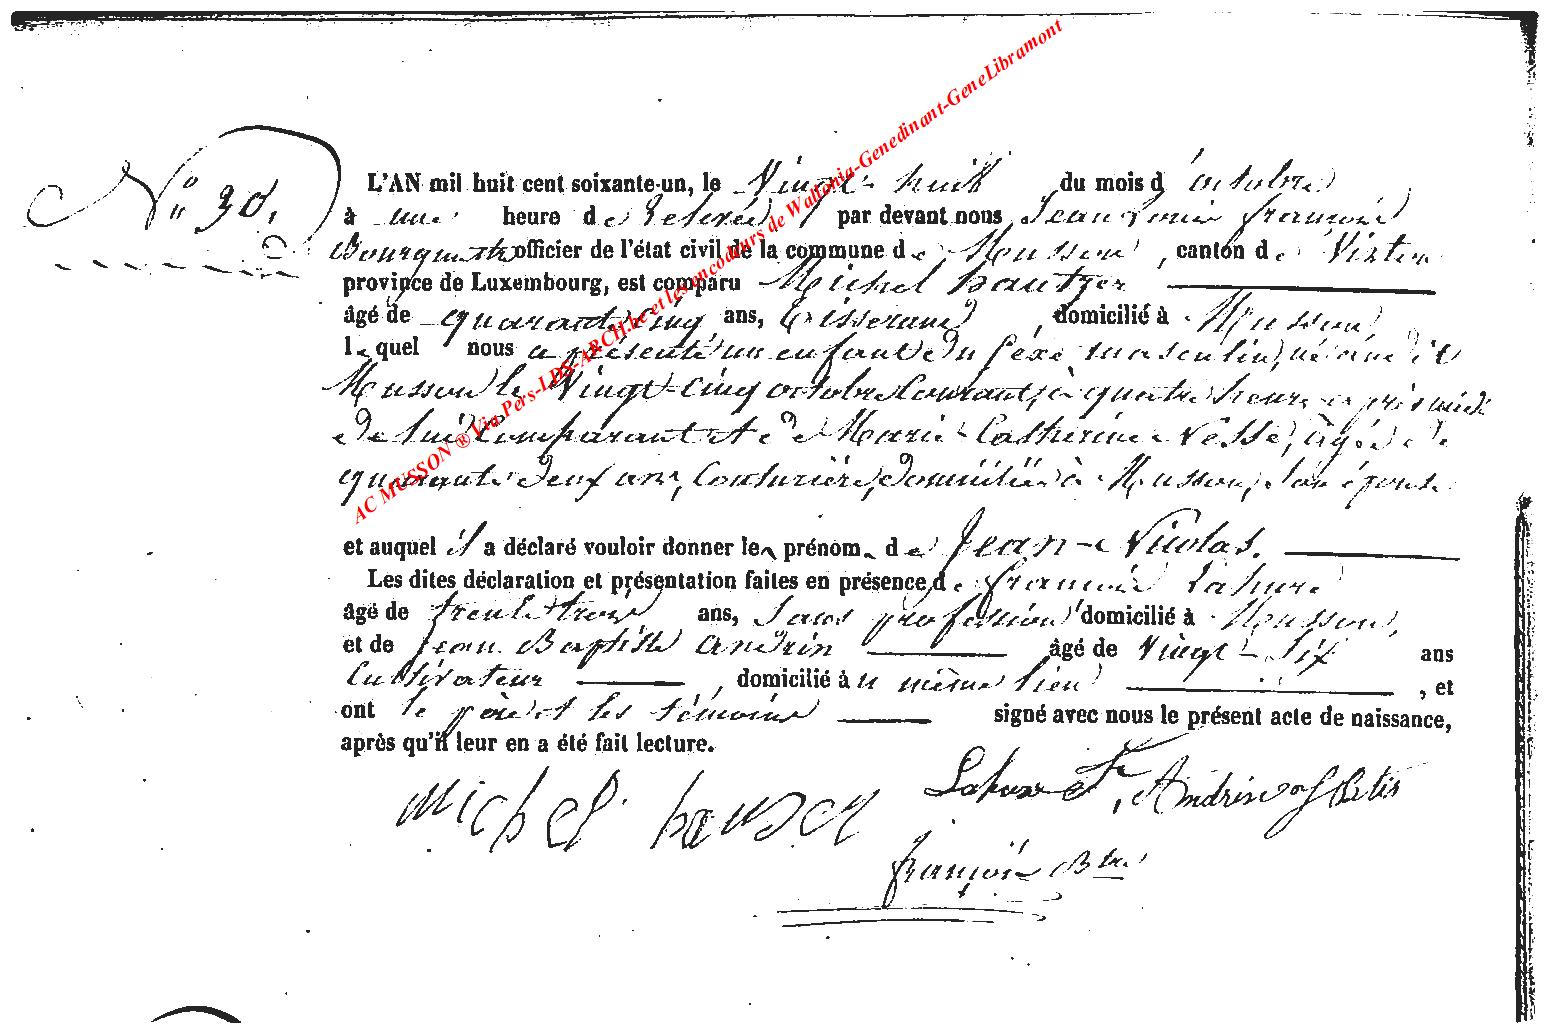 N° 30.
L'AN mil huit cent soixante-un, le Vingt-huit du mois d'octobre
à une heure de relevée par devant nous Jean Louis françois
Bourguet officier de l'état civil de la commune de Musson, canton de Virton
province de Luxembourg, est comparu Michel hautzer
âgé de quarante cinq ans, tisserand, domicilié à Musson
lequel nous a présenté un enfant du sexe masculin, né audit
Musson le Vingt-cinq octobre courant, à quatre heures après midi
de lui comparant et de Marie-Catherine Nesse, âgée de
quarante deux ans, couturière, domiciliée à Musson, son épouse
et auquel il a déclaré vouloir donner les prénoms de Jean-Nicolas.
Les dites déclaration et présentation faites en présence de françois Lahure
âgé de trente trois ans, sans profession domicilié à Musson,
et de Jean Baptiste andrin âgé de Vingt-six ans
Cultivateur, domicilié au même lieu, et
ont le père et les témoins signé avec nous le présent acte de naissance,
après qu'il leur en a été fait lecture.
Michel hauser Lahure f, Andrin J Btis
françois Btes
AC MUSSON ® Via Pers-LDS-ARCH.be et les encodeurs de Wallonia-Genedinant-GeneLibramont